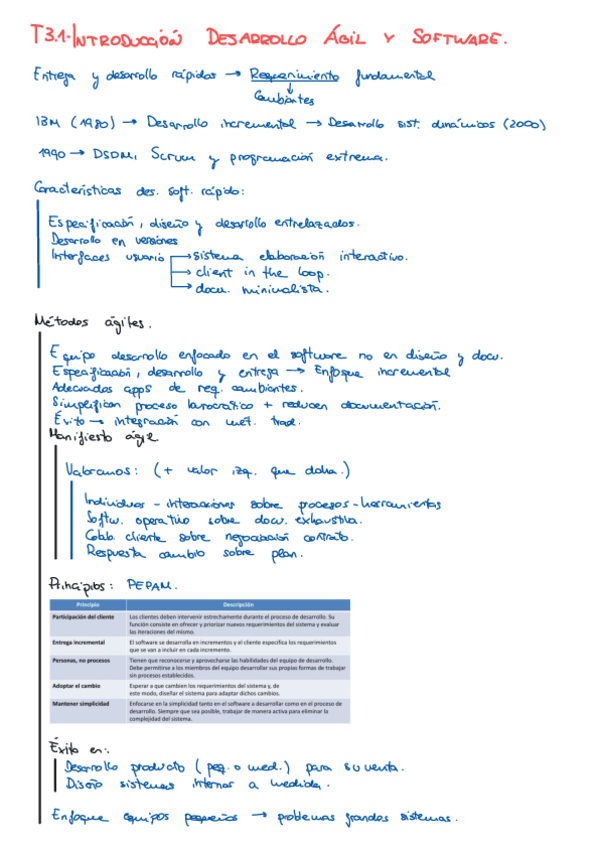 T3.1-INTRODUCCIÓN DESARROLLO ÁGIL Y SOFTWARE.
Entrega y desarrollo rápidos → Requerimiento fundamental
Cambiantes
IBM (1980) → Desarrollo incremental → Desarrollo sist. dinámicos (2000)
1990 → DSDM, Scrum y programación extrema.
Características des. soft. rápido:
Especificación, diseño y desarrollo entrelazados.
Desarrollo en versiones
Interfaces usuario → sistema elaboración interactivo.
→ client in the loop.
→ docu. minimalista.
Métodos ágiles.
Equipo desarrollo enfocado en el software no en diseño y docu.
Especificación, desarrollo y entrega → Enfoque incremental
Adecuados apps de req. cambiantes.
Simplifican proceso burocrático + reducen documentación.
Éxito → integración con met. trad.
Manifiesto ágil
Valoramos: (+ valor izq. que dcha.)
Individuos - interacciones sobre procesos - herramientas
Softw. operativo sobre docu. exhaustiva.
Colab. cliente sobre negociación contrato.
Respuesta cambio sobre plan.
Principios: PEPAM.
Principio Descripción
Participación del cliente Los clientes deben intervenir estrechamente durante el proceso de desarrollo. Su
función consiste en ofrecer y priorizar nuevos requerimientos del sistema y evaluar
las iteraciones del mismo.
Entrega incremental El software se desarrolla en incrementos y el cliente especifica los requerimientos
que se van a incluir en cada incremento.
Personas, no procesos Tienen que reconocerse y aprovecharse las habilidades del equipo de desarrollo.
Debe permitirse a los miembros del equipo desarrollar sus propias formas de trabajar
sin procesos establecidos.
Adoptar el cambio Esperar a que cambien los requerimientos del sistema y, de
este modo, diseñar el sistema para adaptar dichos cambios.
Mantener simplicidad Enfocarse en la simplicidad tanto en el software a desarrollar como en el proceso de
desarrollo. Siempre que sea posible, trabajar de manera activa para eliminar la
complejidad del sistema.
Éxito en:
Desarrollo producto (peq. o med.) para su venta.
Diseño sistemas internos a medida.
Enfoque equipos pequeños → problemas grandes sistemas.